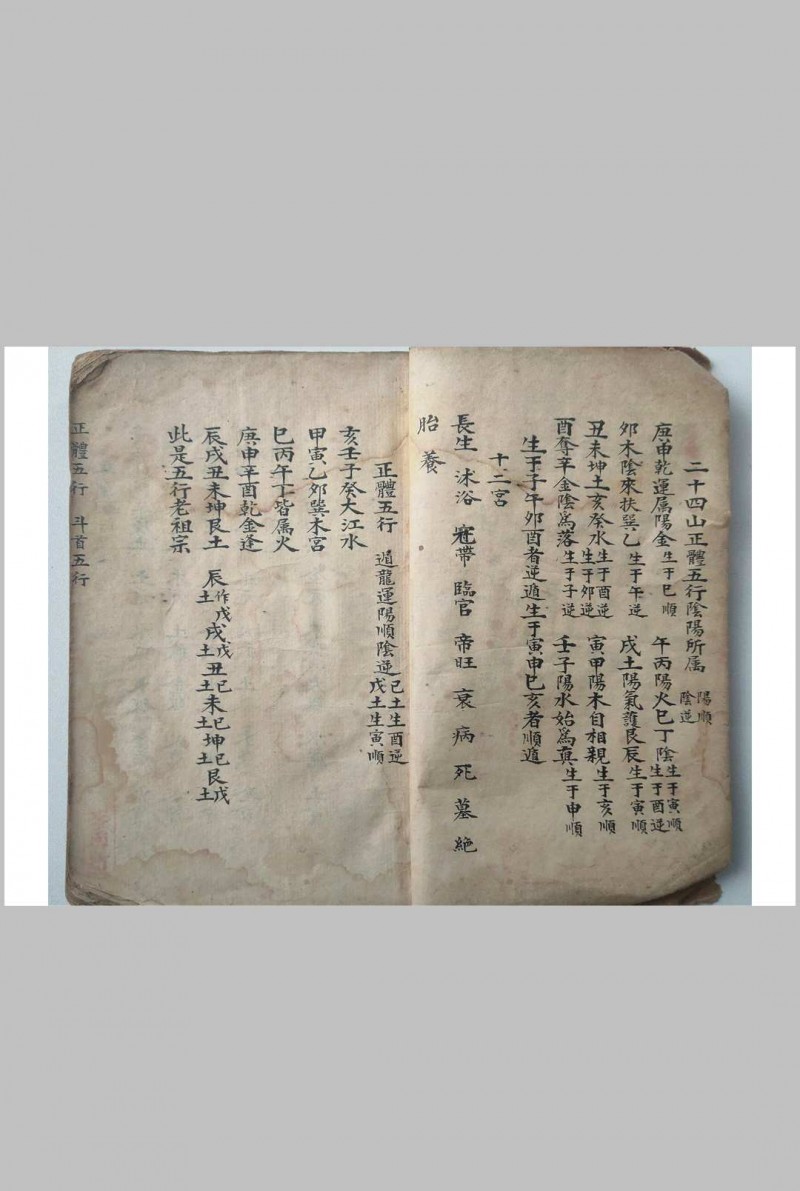 二十四山正體五行陰陽所属 陽順 陰逆
庚申乾運属陽金 生于巳順 午丙陽火巳丁陰 生于寅順 生于酉逆
夘木陰來扶巽乙 生于午逆 戌土陽氣護艮辰 生于寅順
丑未坤土亥癸水 生于酉逆 生于夘逆 寅甲陽木自相親 生于亥順
酉奪辛金陰為落 生于子逆 壬子陽水始為真 生于申順
生于子午夘酉者逆遁生于寅申巳亥者順遁
十二宮
長生 沭浴 冠帶 臨官 帝旺 衰 病 死 墓 絕
胎 養
正體五行 遁龍運陽順陰逆 己土生酉逆 戊土生寅順
亥壬子癸大江水
甲寅乙夘巽木宮
巳丙午丁皆属火
庚申辛酉乾金逢
辰戌丑未坤艮土 辰作戊土戌戊土丑己土未己土坤己土艮戊土
此是五行老祖宗
正體五行 斗首五行